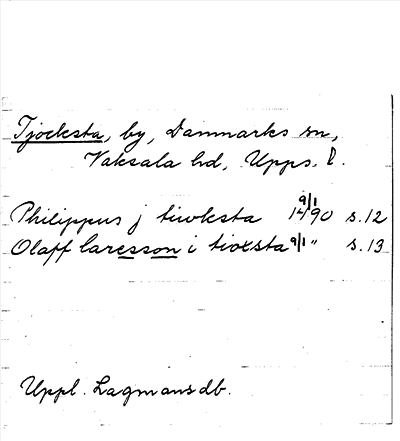 Tjocksta, by, Danmarks sn,
Vaksala hd, Upps. l.
Philippus j tiwksta 9/1 1490 s.12
Olaff laresson i tioxsta 9/1 " s.13
Uppl. Lagmansdb.